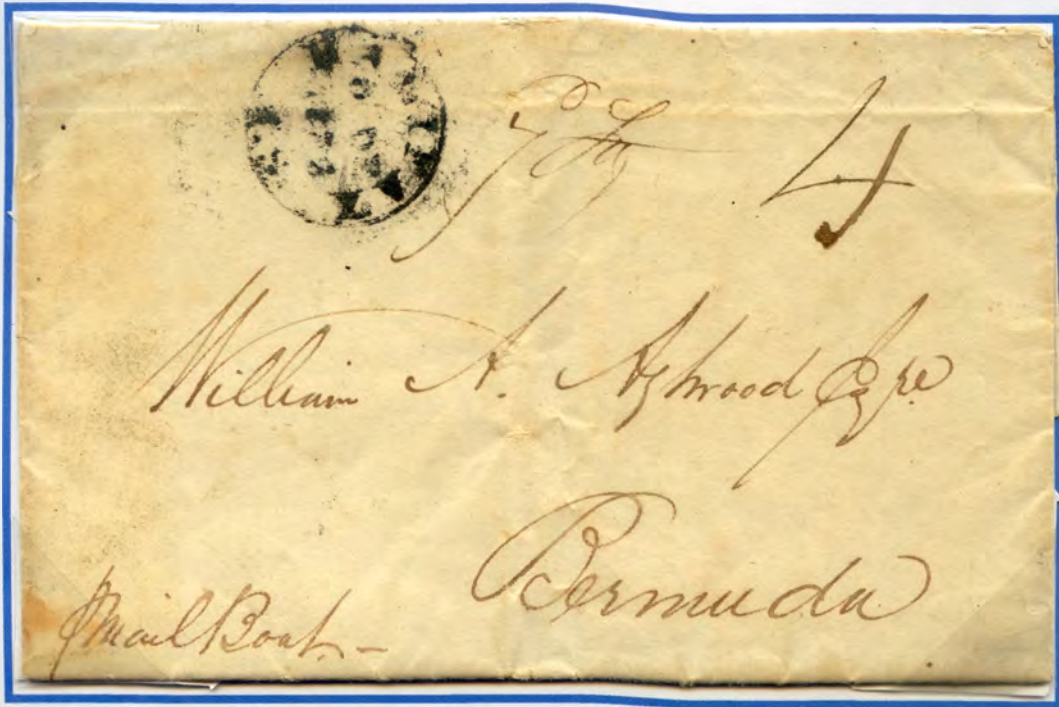 4
William A. Ashwood Esqre
Bermuda
p Mail Boat. –